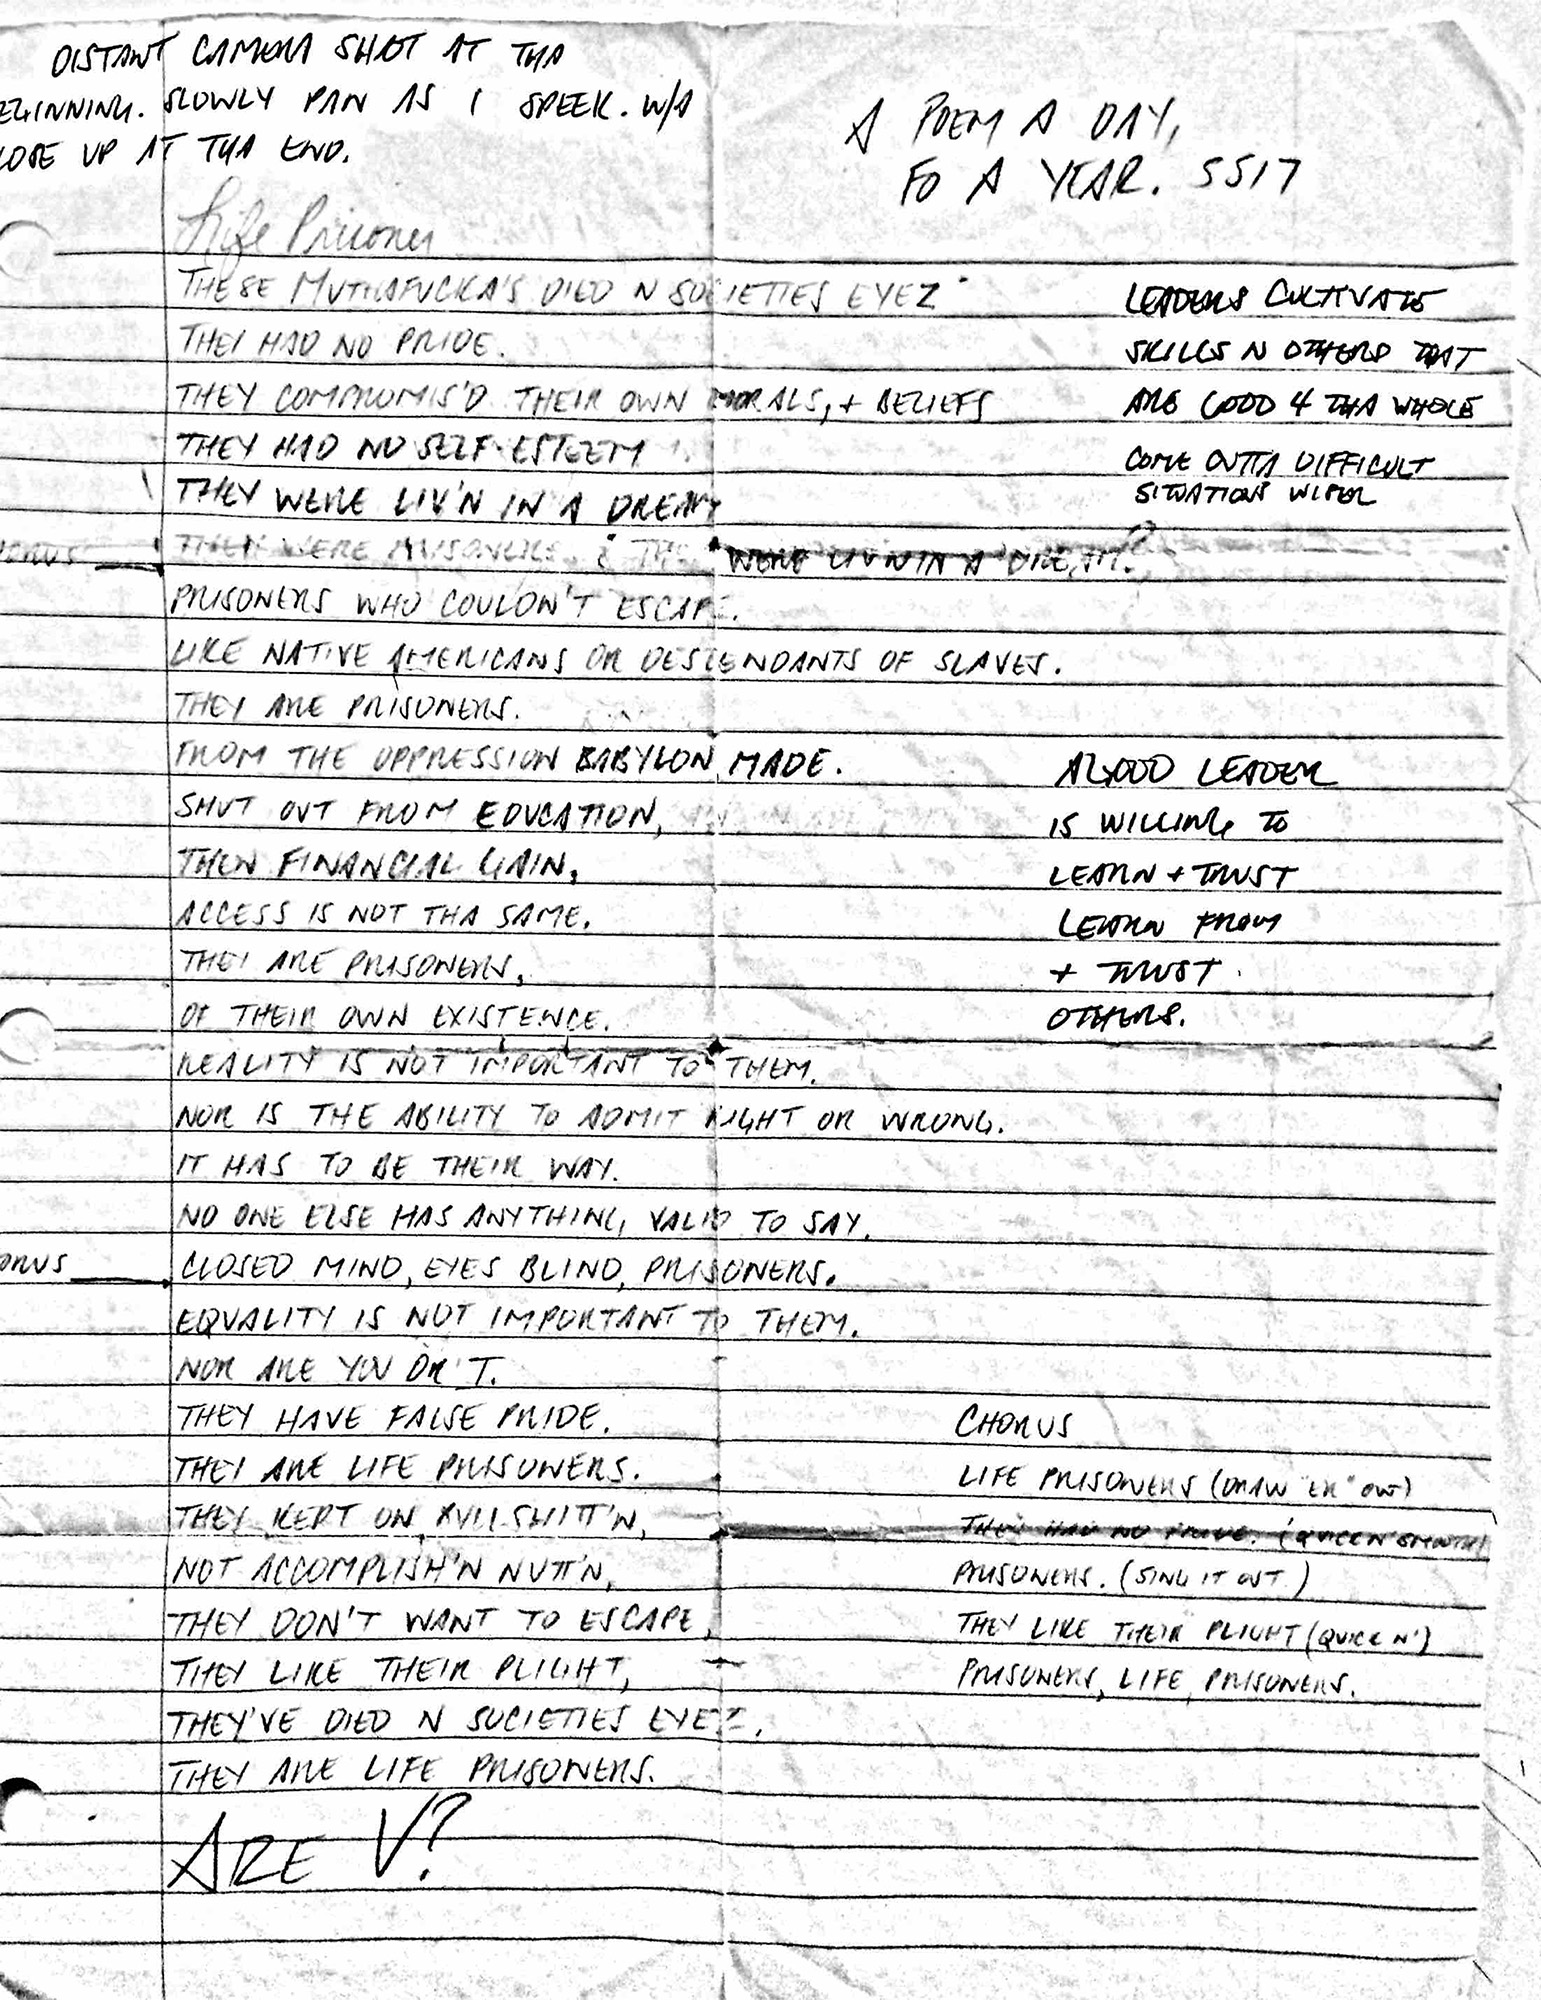 DISTANT CAMERA SHOT AT THA
EGINNING. SLOWLY PAN AS I SPEEK. W/A
LOSE UP AT THA END.
A POEM A DAY,
FO A YEAR. 5517
Life Prisoner
THESE MUTHAFUCKA'S DIED N SOCIETIES EYEZ
THEY HAD NO PRIDE.
THEY COMPROMIS'D THEIR OWN MORALS, + BELIEFS
THEY HAD NO SELF-ESTEEM
THEY WERE LIV'N IN A DREAM
ORUS
THEY WERE PRISONERS. THEY WERE LIV'N IN A DREAM?
PRISONERS WHO COULDN'T ESCAPE.
LIKE NATIVE AMERICANS OR DESCENDANTS OF SLAVES.
THEY ARE PRISONERS.
FROM THE OPPRESSION BABYLON MADE.
SHUT OUT FROM EDUCATION,
THEN FINANCIAL GAIN,
ACCESS IS NOT THA SAME.
THEY ARE PRISONERS,
OF THEIR OWN EXISTENCE.
REALITY IS NOT IMPORTANT TO THEM.
NOR IS THE ABILITY TO ADMIT RIGHT OR WRONG.
IT HAS TO BE THEIR WAY.
NO ONE ELSE HAS ANYTHING VALID TO SAY.
ORUS
CLOSED MIND, EYES BLIND, PRISONERS.
EQUALITY IS NOT IMPORTANT TO THEM.
NOR ARE YOU OR T.
THEY HAVE FALSE PRIDE.
THEY ARE LIFE PRISONERS.
THEY KEPT ON BULLSHITT'N,
NOT ACCOMPLISH'N NUTT'N,
THEY DON'T WANT TO ESCAPE,
THEY LIKE THEIR PLIGHT,
THEY'VE DIED N SOCIETIES EYEZ.
THEY ARE LIFE PRISONERS.
ARE U?
LEADERS CULTIVATE
SKILLS N OTHERS THAT
ARE GOOD 4 THA WHOLE
COME OUTTA DIFFICULT
SITUATIONS WISER
A GOOD LEADER
IS WILLING TO
LEARN + TRUST
LEARN FROM
+ TRUST
OTHERS.
CHORUS
LIFE PRISONERS (DRAW "ER" OUT)
THEY HAD NO PRIDE. (QUICK N' SMOOTH)
PRISONERS. (SING IT OUT)
THEY LIKE THEIR PLIGHT (QUICK N')
PRISONERS, LIFE, PRISONERS.